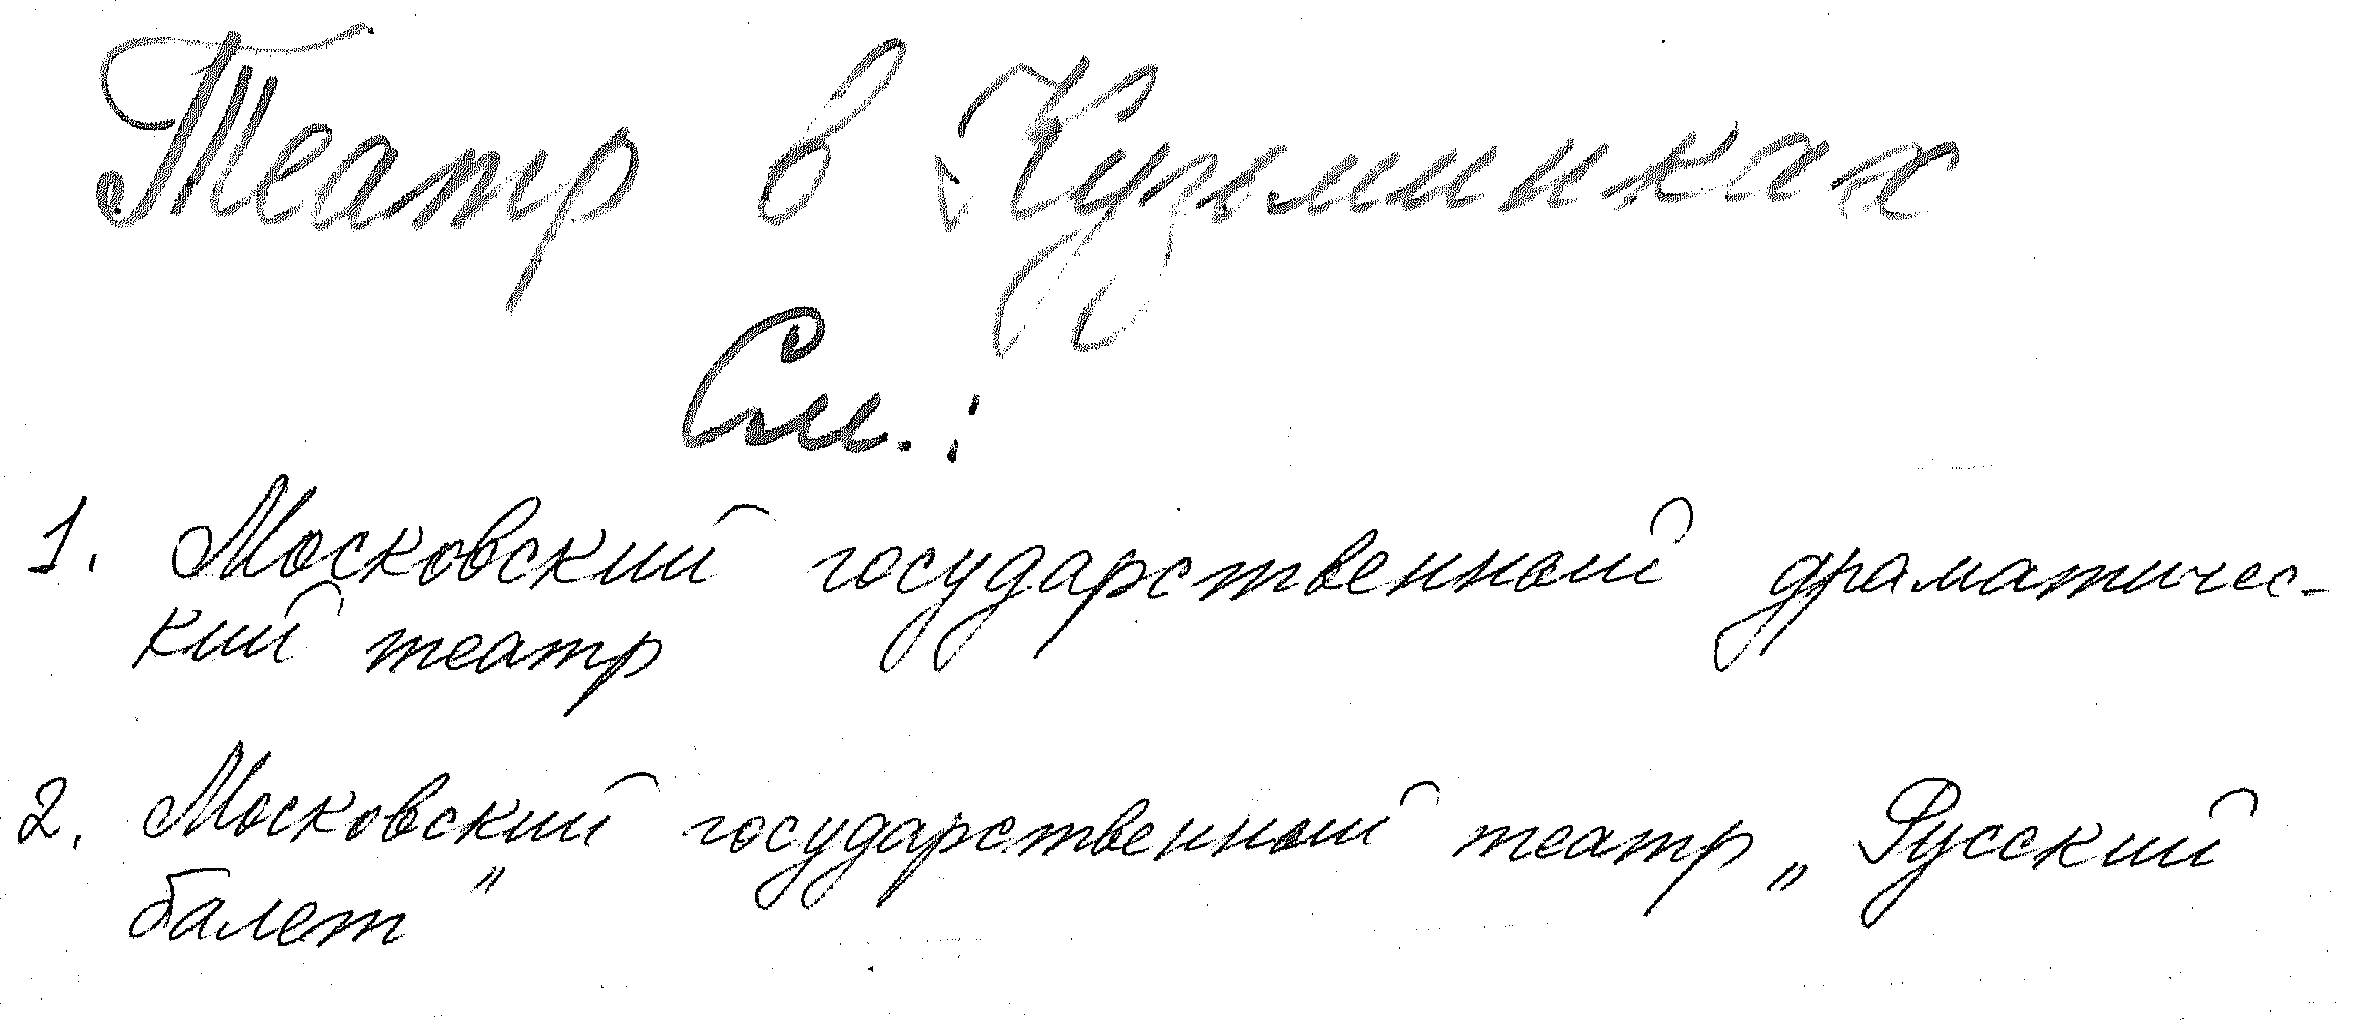 Театр в Кузьминках
См.:
1. Московский государственный драматичес-
кий театр
2. Московский государственный театр „Русский
балет"